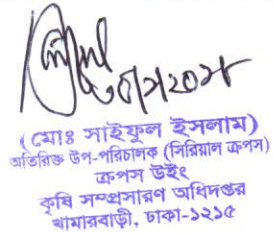 (মোঃ সাইফুল ইসলাম)
অতিরিক্ত উপ-পরিচালক (সিরিয়াল ক্রপস)
ক্রপস উইং
কৃষি সম্প্রসারণ অধিদপ্তর
খামারবাড়ী, ঢাকা-১২১৫